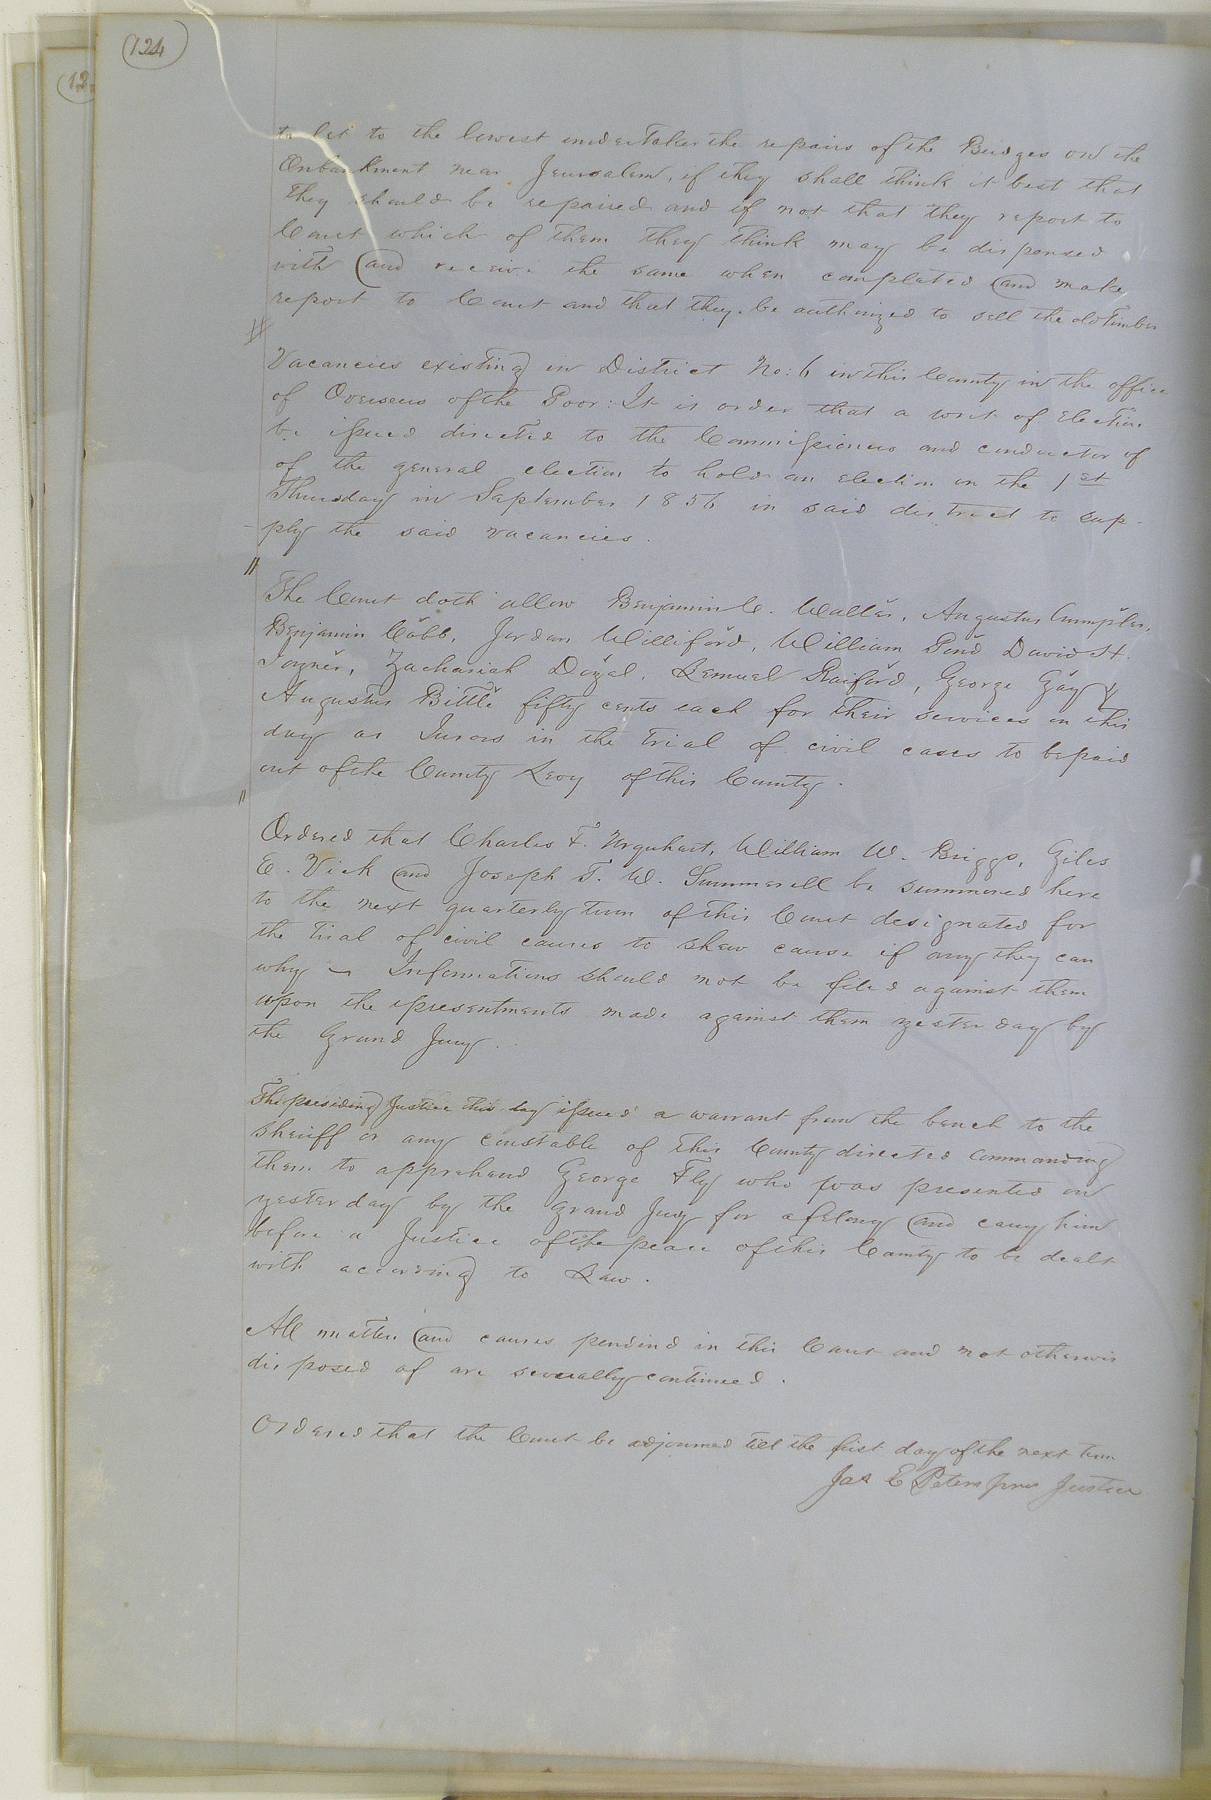 124
12
to let to the lowest undertaker the repairs of the Bridges on the
Enbankment near Jerusalem, if they shall think it best that
they should be repaired and if not that they report to
Court which of them they think may be dispensed
with and receive the same when completed and make
report to Court and that they be authorized to sell the old Timber
#
Vacancies existing in District No: 6 in this County in the office
of Overseers of the Poor: It is order that a writ of Election
be issued directed to the Commissioners and conductor of
of the general election to hold an election on the 1st
Thursday in September 1856 in said district to sup-
ply the said vacancies.
"
The Court doth allow Benjamin C. Waller, Augustus Crumpler,
Benjamin Cobb, Jordan Williford, William Pond David H.
Joyner, Zachariah Doyal, Lemuel Raiford, George Gay &
Augustus Bittle fifty cents each for their services on this
day as Jurors in the trial of civil cases to be paid
out of the County Levy of this County.
"
Ordered that Charles F. Urquhart, William W. Briggs, Giles
E. Vick and Joseph T. W. Summerell be summoned here
to the next quarterly term of this Court designated for
the trial of civil causes to shew cause if any they can
why Informations should not be filed against them
upon the presentments made against them yesterday by
the Grand Jury.
The presiding Justice this day issued a warrant from the bench to the
Sheriff or any constable of this County directed commanding
them to apprehend George Fly who was presented on
yesterday by the Grand Jury for a felony and carry him
before a Justice of the peace of this County to be dealt
with according to Law.
All matters and causes pending in this Court and not otherwise
disposed of are severally continued.
Ordered that the Court be adjourned till the first day of the next term
Jas E Peters Justice